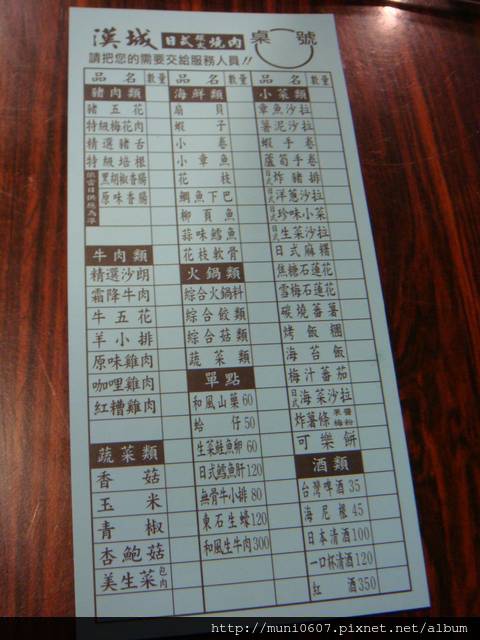 漢城 日式炭火燒肉 桌號
請把您的需要交給服務人員!!
品名 數量 品名 數量 品名 數量
豬肉類
豬五花
特級梅花肉
精選豬舌
特級培根
黑胡椒香腸
原味香腸
依當日供應為準
牛肉類
精選沙朗
霜降牛肉
牛五花
羊小排
原味雞肉
咖哩雞肉
紅糟雞肉
蔬菜類
香菇
玉米
青椒
杏鮑菇
美生菜包肉
海鮮類
扇貝
蝦子
小卷
小章魚
花枝
鯛魚下巴
柳頁魚
蒜味鱈魚
花枝軟骨
火鍋類
綜合火鍋料
綜合餃類
綜合菇類
蔬菜類
單點
和風山藥60
蛤仔50
生菜鮭魚卵60
日式鱈魚肝120
無骨牛小排80
東石生蠔120
和風生牛肉300
小菜類
章魚沙拉
薯泥沙拉
蝦手卷
蘆筍手卷
日式炸豬排
日式洋蔥沙拉
日式珍味小菜
日式生菜沙拉
日式麻糬
焦糖石蓮花
雪梅石蓮花
碳燒蕃薯
烤飯糰
海苔飯
梅汁蕃茄
日式海菜沙拉
炸薯條
可樂餅
酒類
台灣啤酒35
海尼根45
日本清酒100
一口杯清酒120
紅酒350
http://muni0607.pixnet.net/album